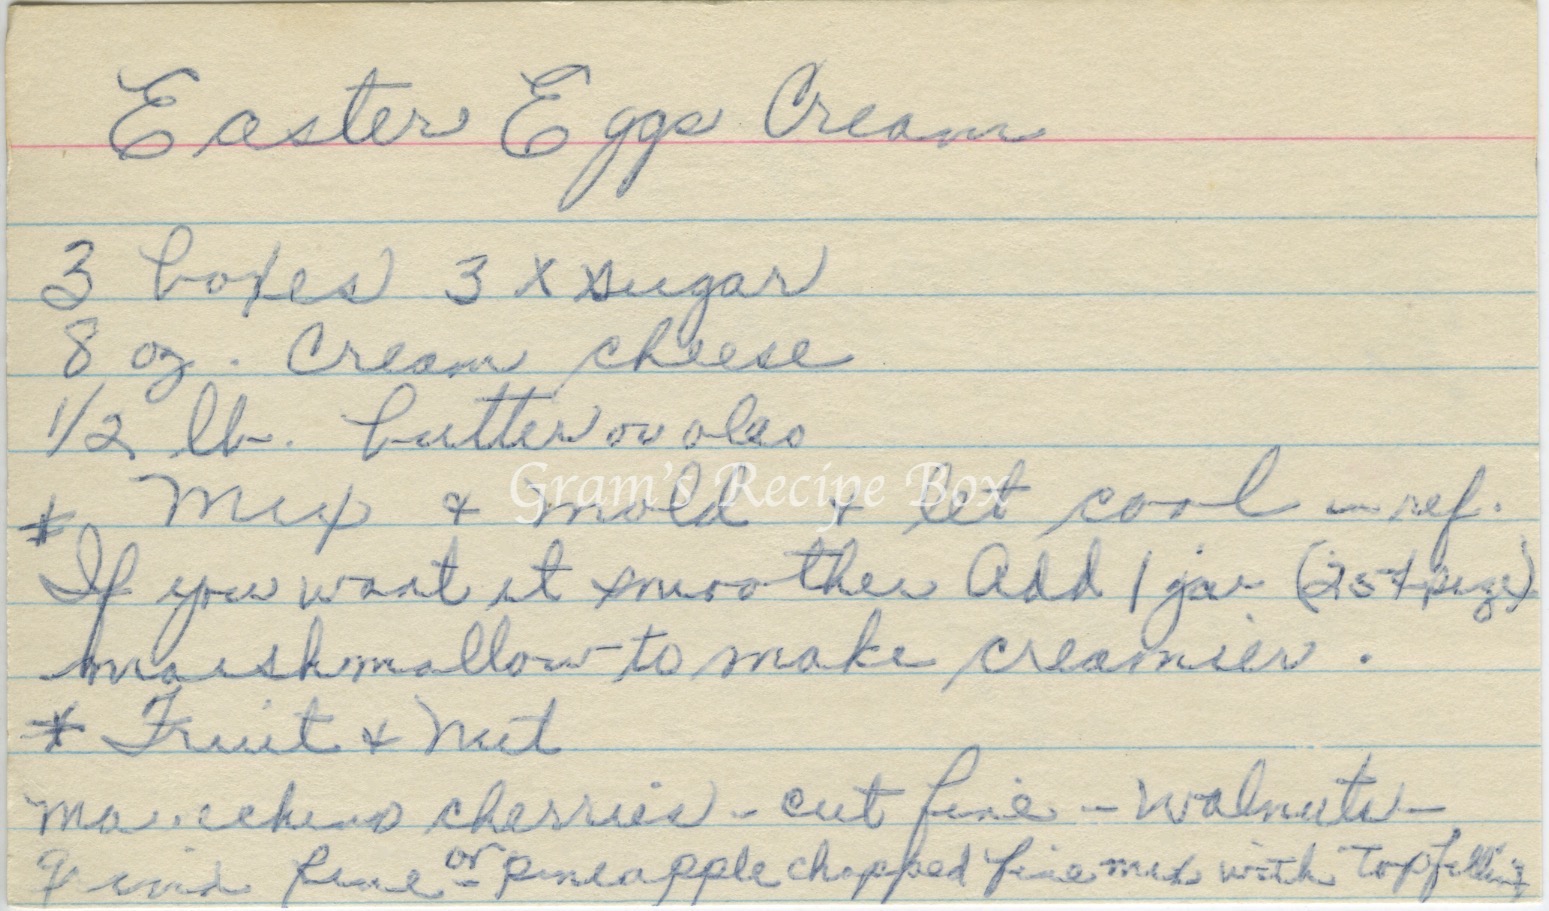 Easter Eggs Cream
3 boxes 3 X sugar
8 oz. Cream cheese
1/2 lb. butter or oleo
Gram's Recipe Box
* Mix & mold & let cool in ref.
If you want it smoother Add 1 jar (25¢ size)
marshmallow to make creamier.
* Fruit & Nut
Maraschino cherries - cut fine - walnuts -
grind fine or pineapple chopped fine mix with top filling